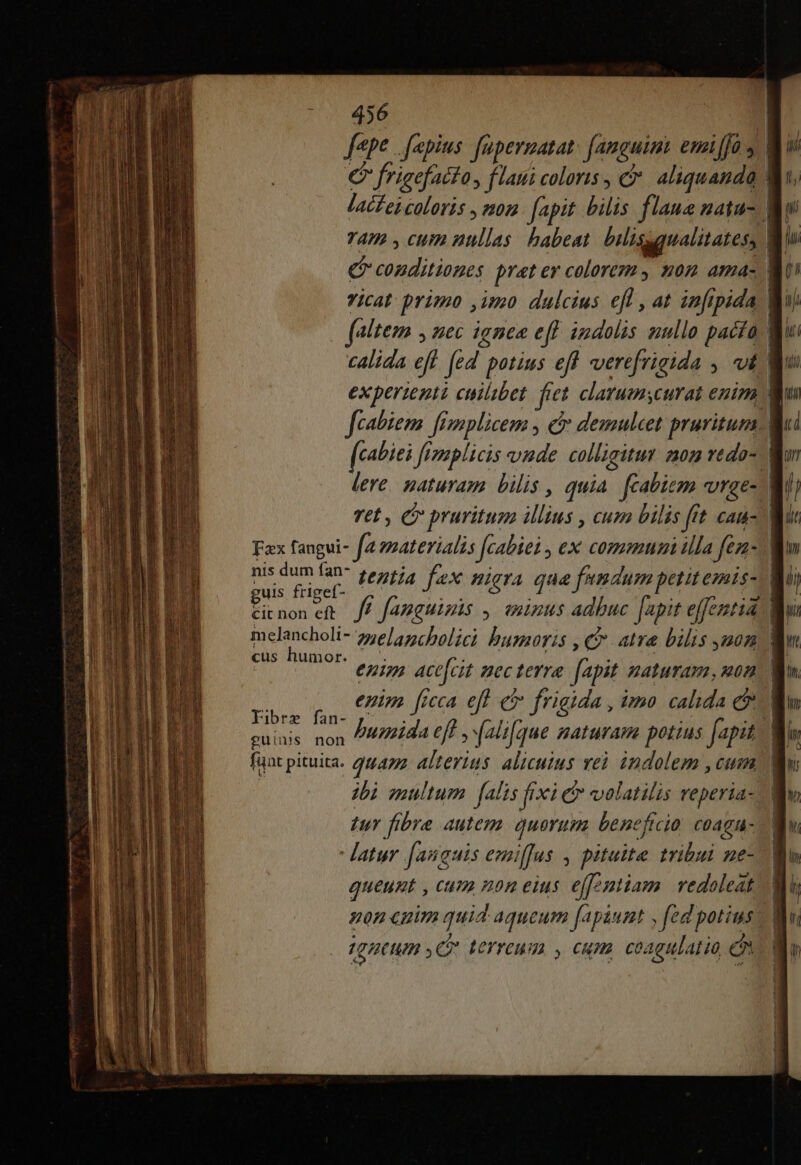 456
sæpe sæpius supernatat sanguini emisso,
& frigefacto, flaui coloris, & aliquando
lactei coloris, non sapit bilis flauæ natu-
ram, cum nullas habeat bilis qualitates,
& conditiones præter colorem, non ama-
ricat primo, imo dulcius est, at insipida
saltem, nec ignea est indolis nullo pacto
calida est sed potius est vere frigida, vt
experienti cuilibet fiet clarum; curat enim
scabiem simplicem, & demulcet pruritum
scabiei simplicis vnde colligitur non redo-
lere naturam bilis, quia scabiem vrge-
ret, & pruritum illius, cum bilis sit cau-
Fæx sangui- sa materialis scabiei, ex communi illa sen-
nis dum san- tentia fæx nigra quæ fundum petit emis-
guis frigef-
cit non est si sanguinis, minus adhuc sapit essentiā
melancholi- melancholici humoris, & atræ bilis, non
cus humor.
enim acescit nec terræ sapit naturam, non
enim sicca est & frigida, imo calida &
Fibræ san-
guinis non humida est, salisque naturam potius sapit
sunt pituita. quam alterius alicuius rei indolem, cum
ibi multum salis fixi & volatilis reperia-
tur fibræ autem quorum beneficio coagu-
latur sanguis emissus, pituitæ tribui ne-
queunt, cum non eius essentiam redoleāt
non enim quid aqueum sapiunt, sed potius
igneum, & terreum, cum coagulatio, &